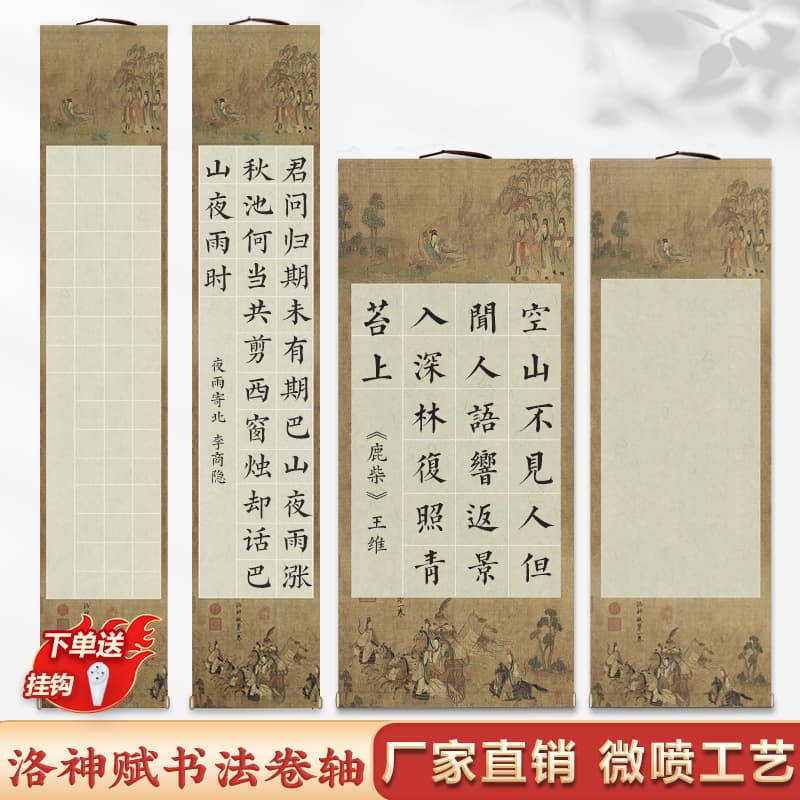 君问归期未有期巴山夜雨涨
秋池何当共剪西窗烛却话巴
山夜雨时
夜雨寄北 李商隐
空山不見人但
聞人語響返景
入深林復照青
苔上
《鹿柴》王维
下单送
挂钩
洛神赋书法卷轴
厂家直销 微喷工艺